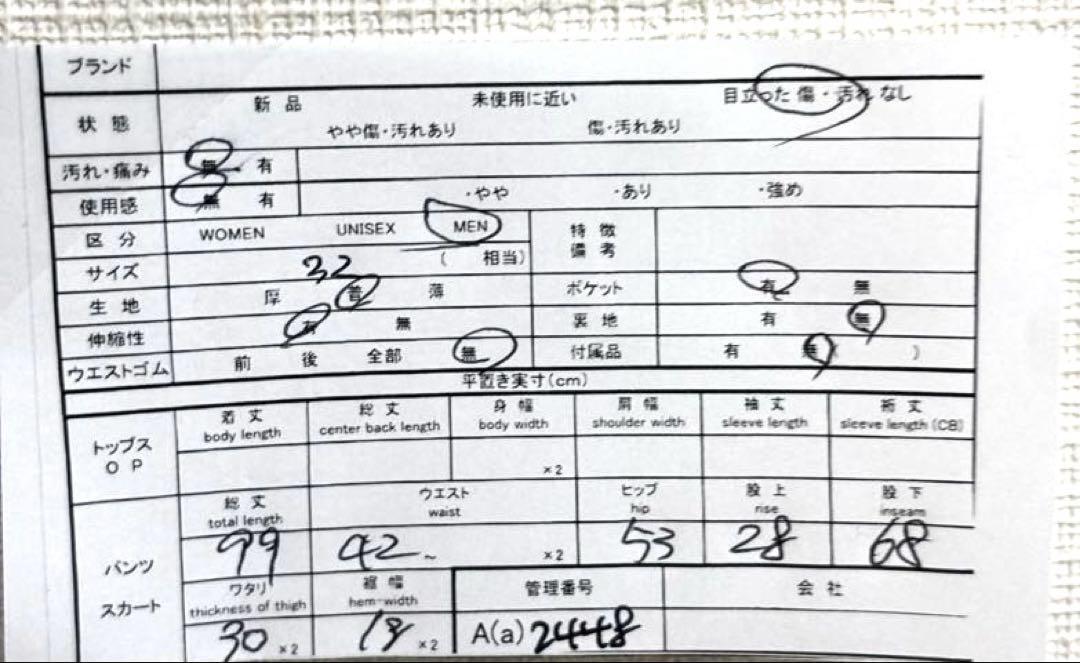 ブランド
状態 新品 未使用に近い 目立った傷・汚れなし
やや傷・汚れあり 傷・汚れあり
汚れ・痛み 無・有
使用感 無 有 ・やや ・あり ・強め
区分 WOMEN UNISEX MEN 特徴
備考
サイズ 32 ( 相当)
生地 厚 普 薄 ポケット 有 無
伸縮性 有 無 裏地 有 無
ウエストゴム 前 後 全部 無 付属品 有 無 )
平置き実寸(cm)
トップス
OP
着丈 総丈 身幅 肩幅 袖丈 裄丈
body length center back length body width shoulder width sleeve length sleeve length (CB)
×2
パンツ
スカート
総丈 ウエスト ヒップ 股上 股下
total length waist hip rise inseam
99 42~ ×2 53 28 68
ワタリ 裾幅 管理番号 会社
thickness of thigh hem-width
30 ×2 18 ×2 A(a) 2448